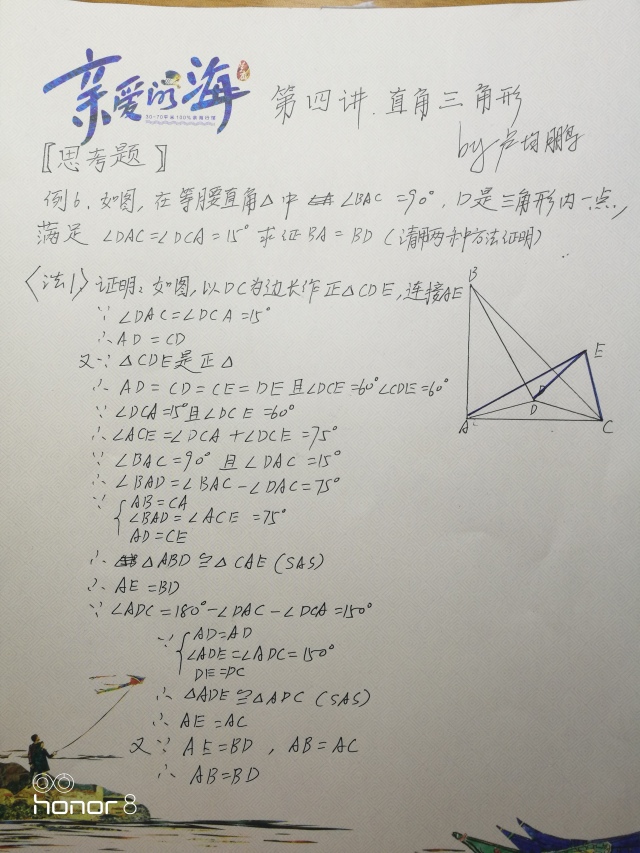 亲爱的海
第四讲.直角三角形
by 卢均鹏
【思考题】
例6.如图,在等腰直角△中 ∠BAC=90°,D是三角形内一点,
满足 ∠DAC=∠DCA=15° 求证BA=BD(请用两种方法证明)
〈法1〉证明:如图,以DC为边长作正△CDE,连接AE
∵ ∠DAC=∠DCA=15°
∴ AD=CD
又∵ △CDE是正△
∴ AD=CD=CE=DE且∠DCE=60°∠CDE=60°
∵ ∠DCA=15°且∠DCE=60°
∴ ∠ACE=∠DCA+∠DCE=75°
∵ ∠BAC=90° 且 ∠DAC=15°
∴ ∠BAD=∠BAC-∠DAC=75°
∵ { AB=CA
∠BAD=∠ACE=75°
AD=CE
∴ △ABD≌△CAE(SAS)
∴ AE=BD
∵ ∠ADC=180°-∠DAC-∠DCA=150°
∵ { AD=AD
∠ADE=∠ADC=150°
DE=DC
∴ △ADE≌△ADC(SAS)
∴ AE=AC
又∵ AE=BD,AB=AC
∴ AB=BD
B
E
D
A
C
honor 8